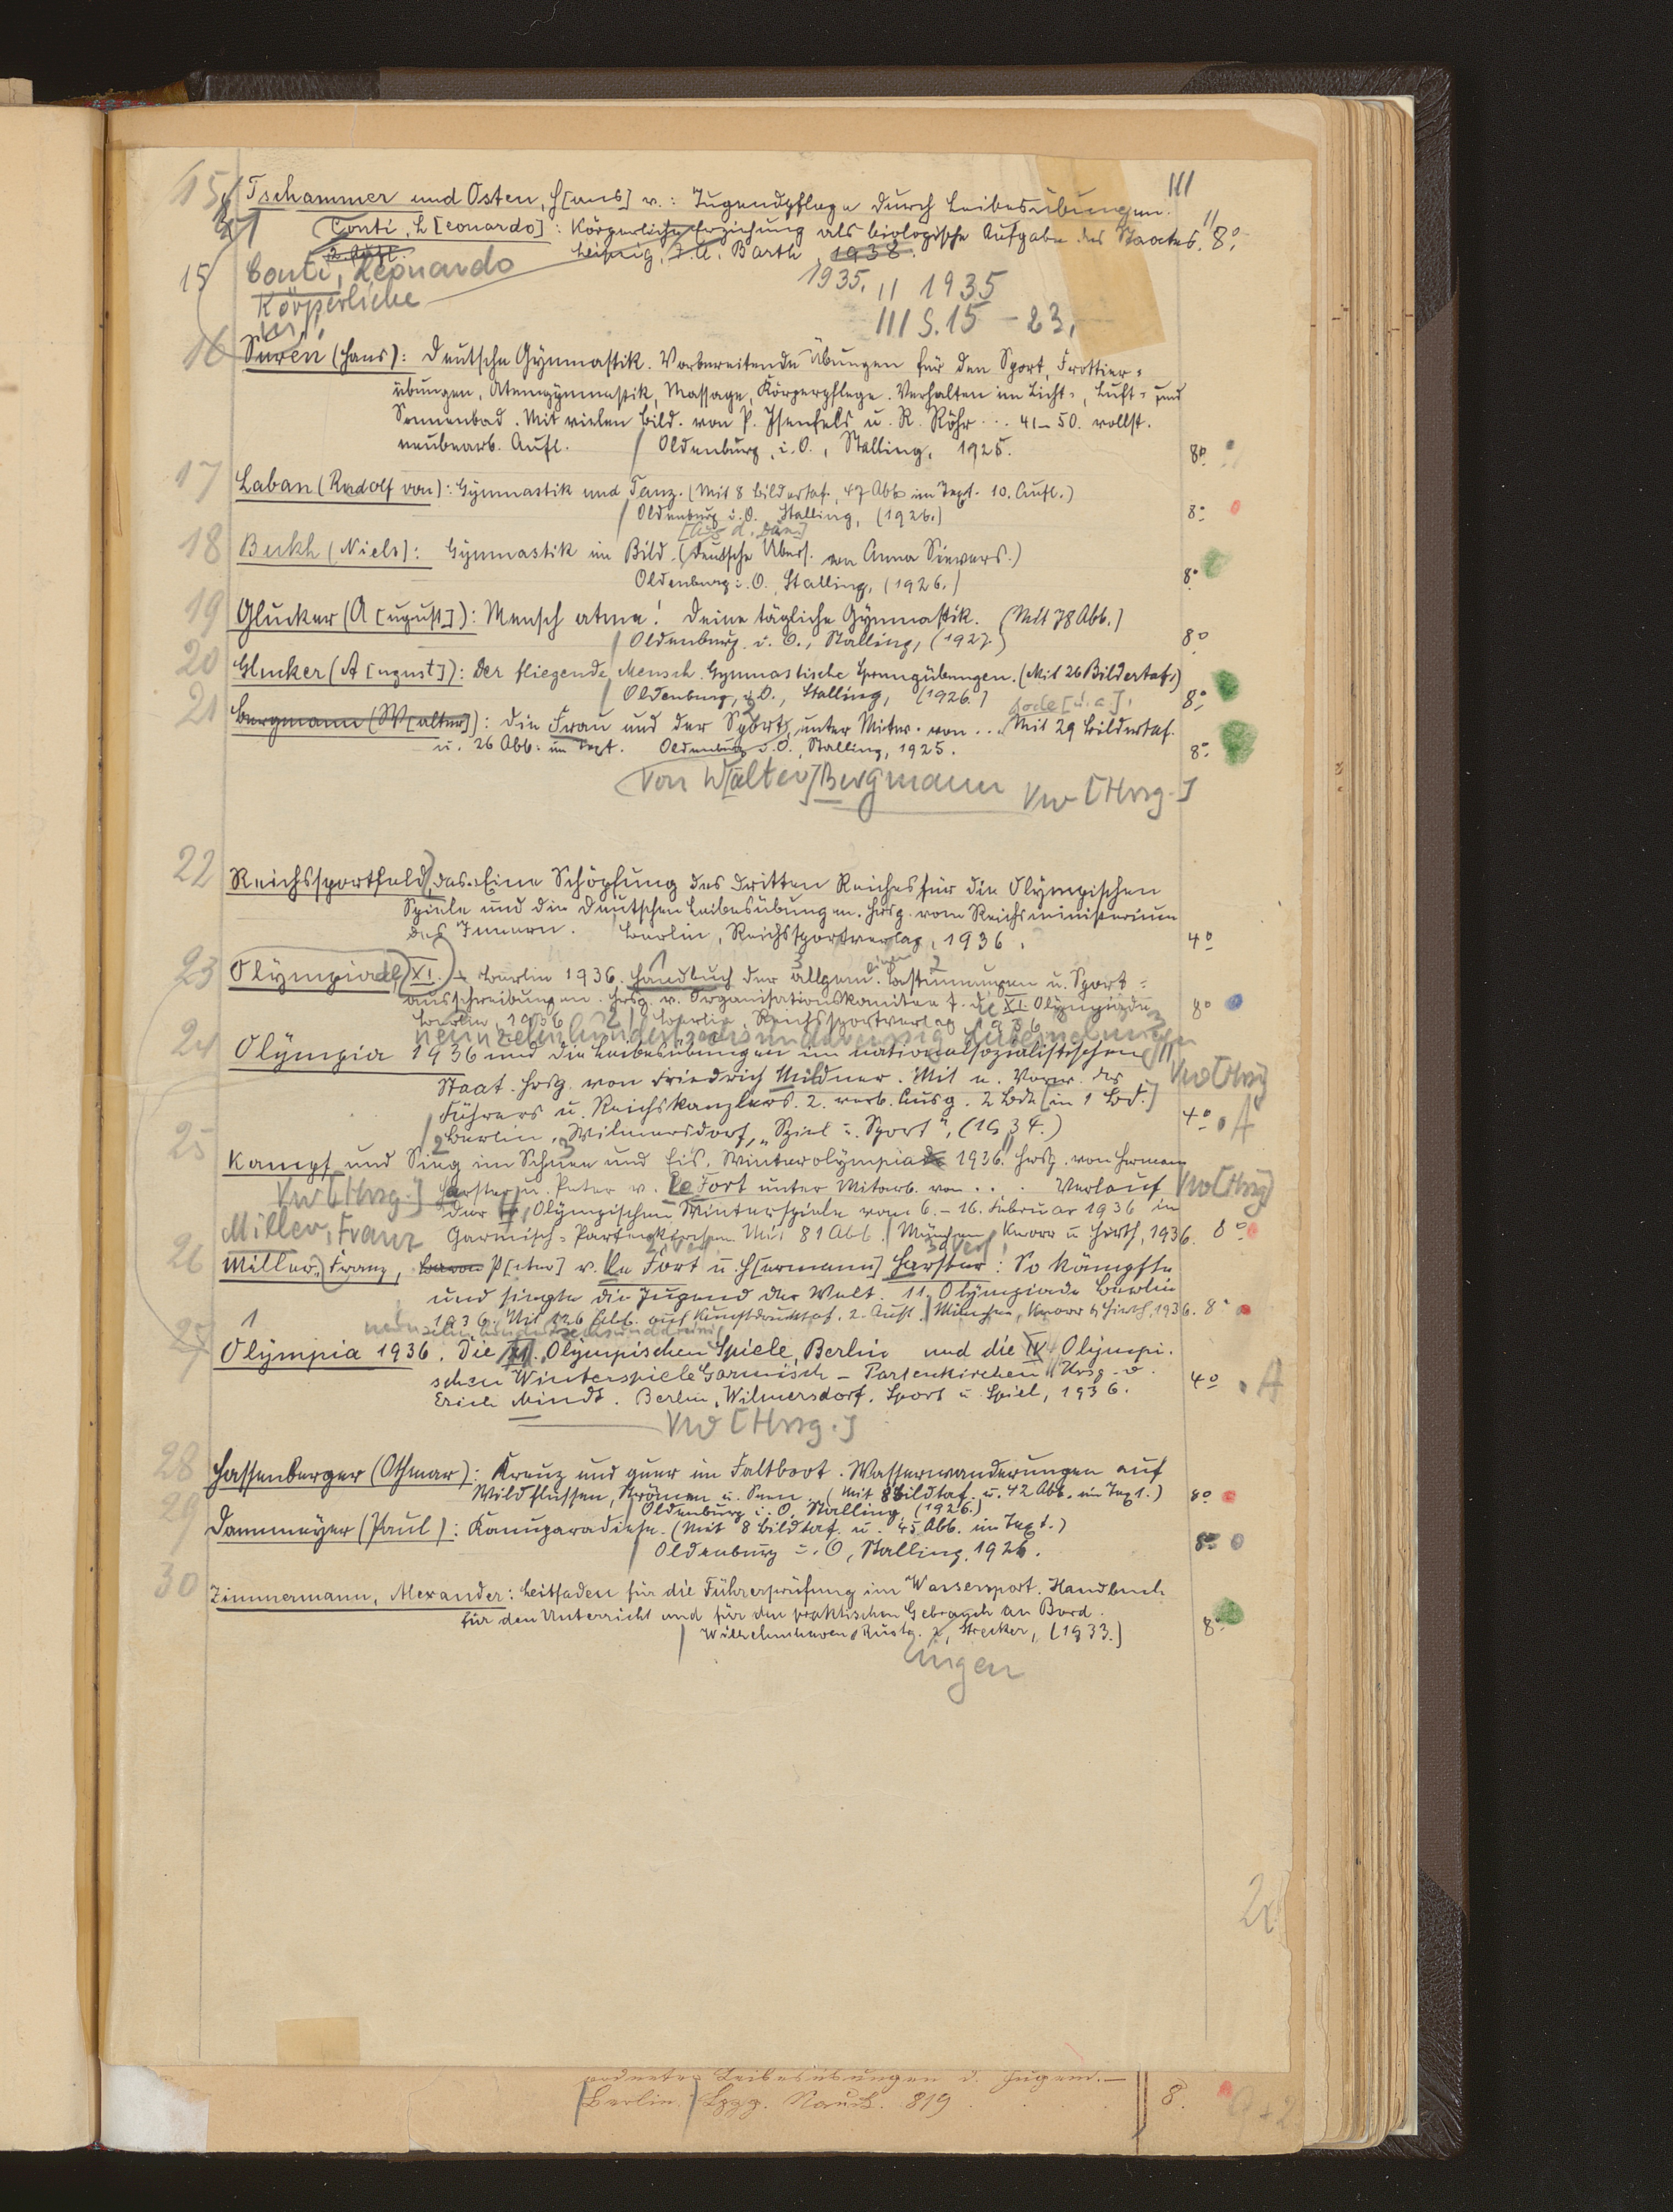 III
15 Tschammer und Osten, H[ans] v.: Jugendpflege durch Leibesübungen.
Conti, L[eonardo]: Körperliche Erziehung als biologische Aufgabe des Staates. 8°.
2. Aufl. Leipzig, J. A. Barth, 1938.
15 Conti, Leonardo 1935. II 1935
Körperliche III S. 15 - 23.
16 Surén (Hans): Deutsche Gymnastik. Vorbereitende Übungen für den Sport, Frottier-
übungen, Atemgymnastik, Massage, Körperpflege. Verhalten im Licht-, Luft- und
Sonnenbad. Mit vielen Bild. von P. Isenfels u. R. Röhr... 41-50. vollst.
neubearb. Aufl. Oldenburg, i. O., Stalling, 1925. 8°.
17 Laban (Rudolf von): Gymnastik und Tanz. (Mit 8 Bildertaf., 47 Abb. im Text. 10. Aufl.)
Oldenburg i. O. Stalling, (1926.) 8°
[Aus d. Dän.]
18 Bukh (Niels): Gymnastik im Bild. (Deutsche Übers. von Anna Sievers.)
Oldenburg i. O., Stalling, (1926.) 8°
19 Glucker (A[ugust]): Mensch atme! Deine tägliche Gymnastik. (Mit 78 Abb.)
Oldenburg i. O., Stalling, (1927.) 8°
20 Glucker (A[ugust]): Der fliegende Mensch. Gymnastische Sprungübungen. (Mit 26 Bildertaf.)
Oldenburg, i. O., Stalling, (1926.) 8°
21 Bergmann (W[alter]): Die Frau und der Sport, unter Mitw. von ... Mit 29 Bildertaf.
u. 26 Abb. im Text. Oldenburg i. O., Stalling, 1925. 8°
Von W[alter] Bergmann Vw [Hrsg.]
22 Reichssportfeld, das. Eine Schöpfung des Dritten Reiches für die Olympischen
Spiele und die Deutschen Leibesübungen. Hrsg. vom Reichsministerium
des Innern. Berlin, Reichssportverlag, 1936. 4°
23 Olympiade XI. Berlin 1936. Handbuch der allgem. Bestimmungen u. Sport-
ausschreibungen. Hrsg. v. Organisationskomitee f. die XI. Olympiade
Berlin 1936. Berlin, Reichssportverlag 1936. 8°
neunzehnhundertsechsunddreissig
24 Olympia 1936 und die Leibesübungen im nationalsozialistischen
Staat. Hrsg. von Friedrich Mildner. Mit e. Vorw. des Vw [Hrsg]
Führers u. Reichskanzlers. 2. verb. Ausg. 2 Bde [in 1 Bd.]
Berlin, Wilmersdorf, "Spiel u. Sport", (1934.) 4° A
25 Kampf und Sieg im Schnee und Eis. Winterolympiade 1936. Hrsg. von Herman
Vw [Hrsg.] Harster u. Peter v. Le Fort unter Mitarb. von ... Verlauf Vw [Hrsg]
der IV. Olympischen Winterspiele vom 6.-16. Februar 1936 in
Miller, Franz Garmisch-Partenkirchen. Mit 81 Abb. München, Knorr u. Hirth, 1936. 8°
26 Miller, Franz, Baron P[eter] v. Le Fort u. H[ermann] Harster: So kämpfte
und siegte die Jugend der Welt. 11. Olympiade Berlin
1936. Mit 126 Abb. auf Kunstdrucktaf. 2. Aufl. München, Knorr & Hirth, 1936. 8°
neunzehnhundertsechsunddreissig
27 Olympia 1936. Die XI. Olympischen Spiele, Berlin und die IV. Olympi-
schen Winterspiele Garmisch-Partenkirchen. Hrsg. v.
Erich Mindt. Berlin, Wilmersdorf. Sport u. Spiel, 1936. 4° A
Vw [Hrsg.]
28 Hassenberger (Othmar): Kreuz und quer im Faltboot. Wasserwanderungen auf
Wildflüssen, Strömen u. Seen. (Mit 8 Bildtaf. u. 42 Abb. im Text.) 8°
Oldenburg i. O. Stalling, (1926.)
29 Dammeyer (Paul): Kanuparadiese. (Mit 8 Bildtaf. u. 45 Abb. im Text.)
Oldenburg i. O., Stalling, 1926. 8°
30 Zimmermann, Alexander: Leitfaden für die Führerprüfung im Wassersport. Handbuch
für den Unterricht und für den praktischen Gebrauch an Bord.
Wilhelmshaven, Rüstg. Strecker, (1933.) 8°
ingen
Leibesübungen d. Jugend. —
Berlin. Lpzg. Nauck. 819. 8.